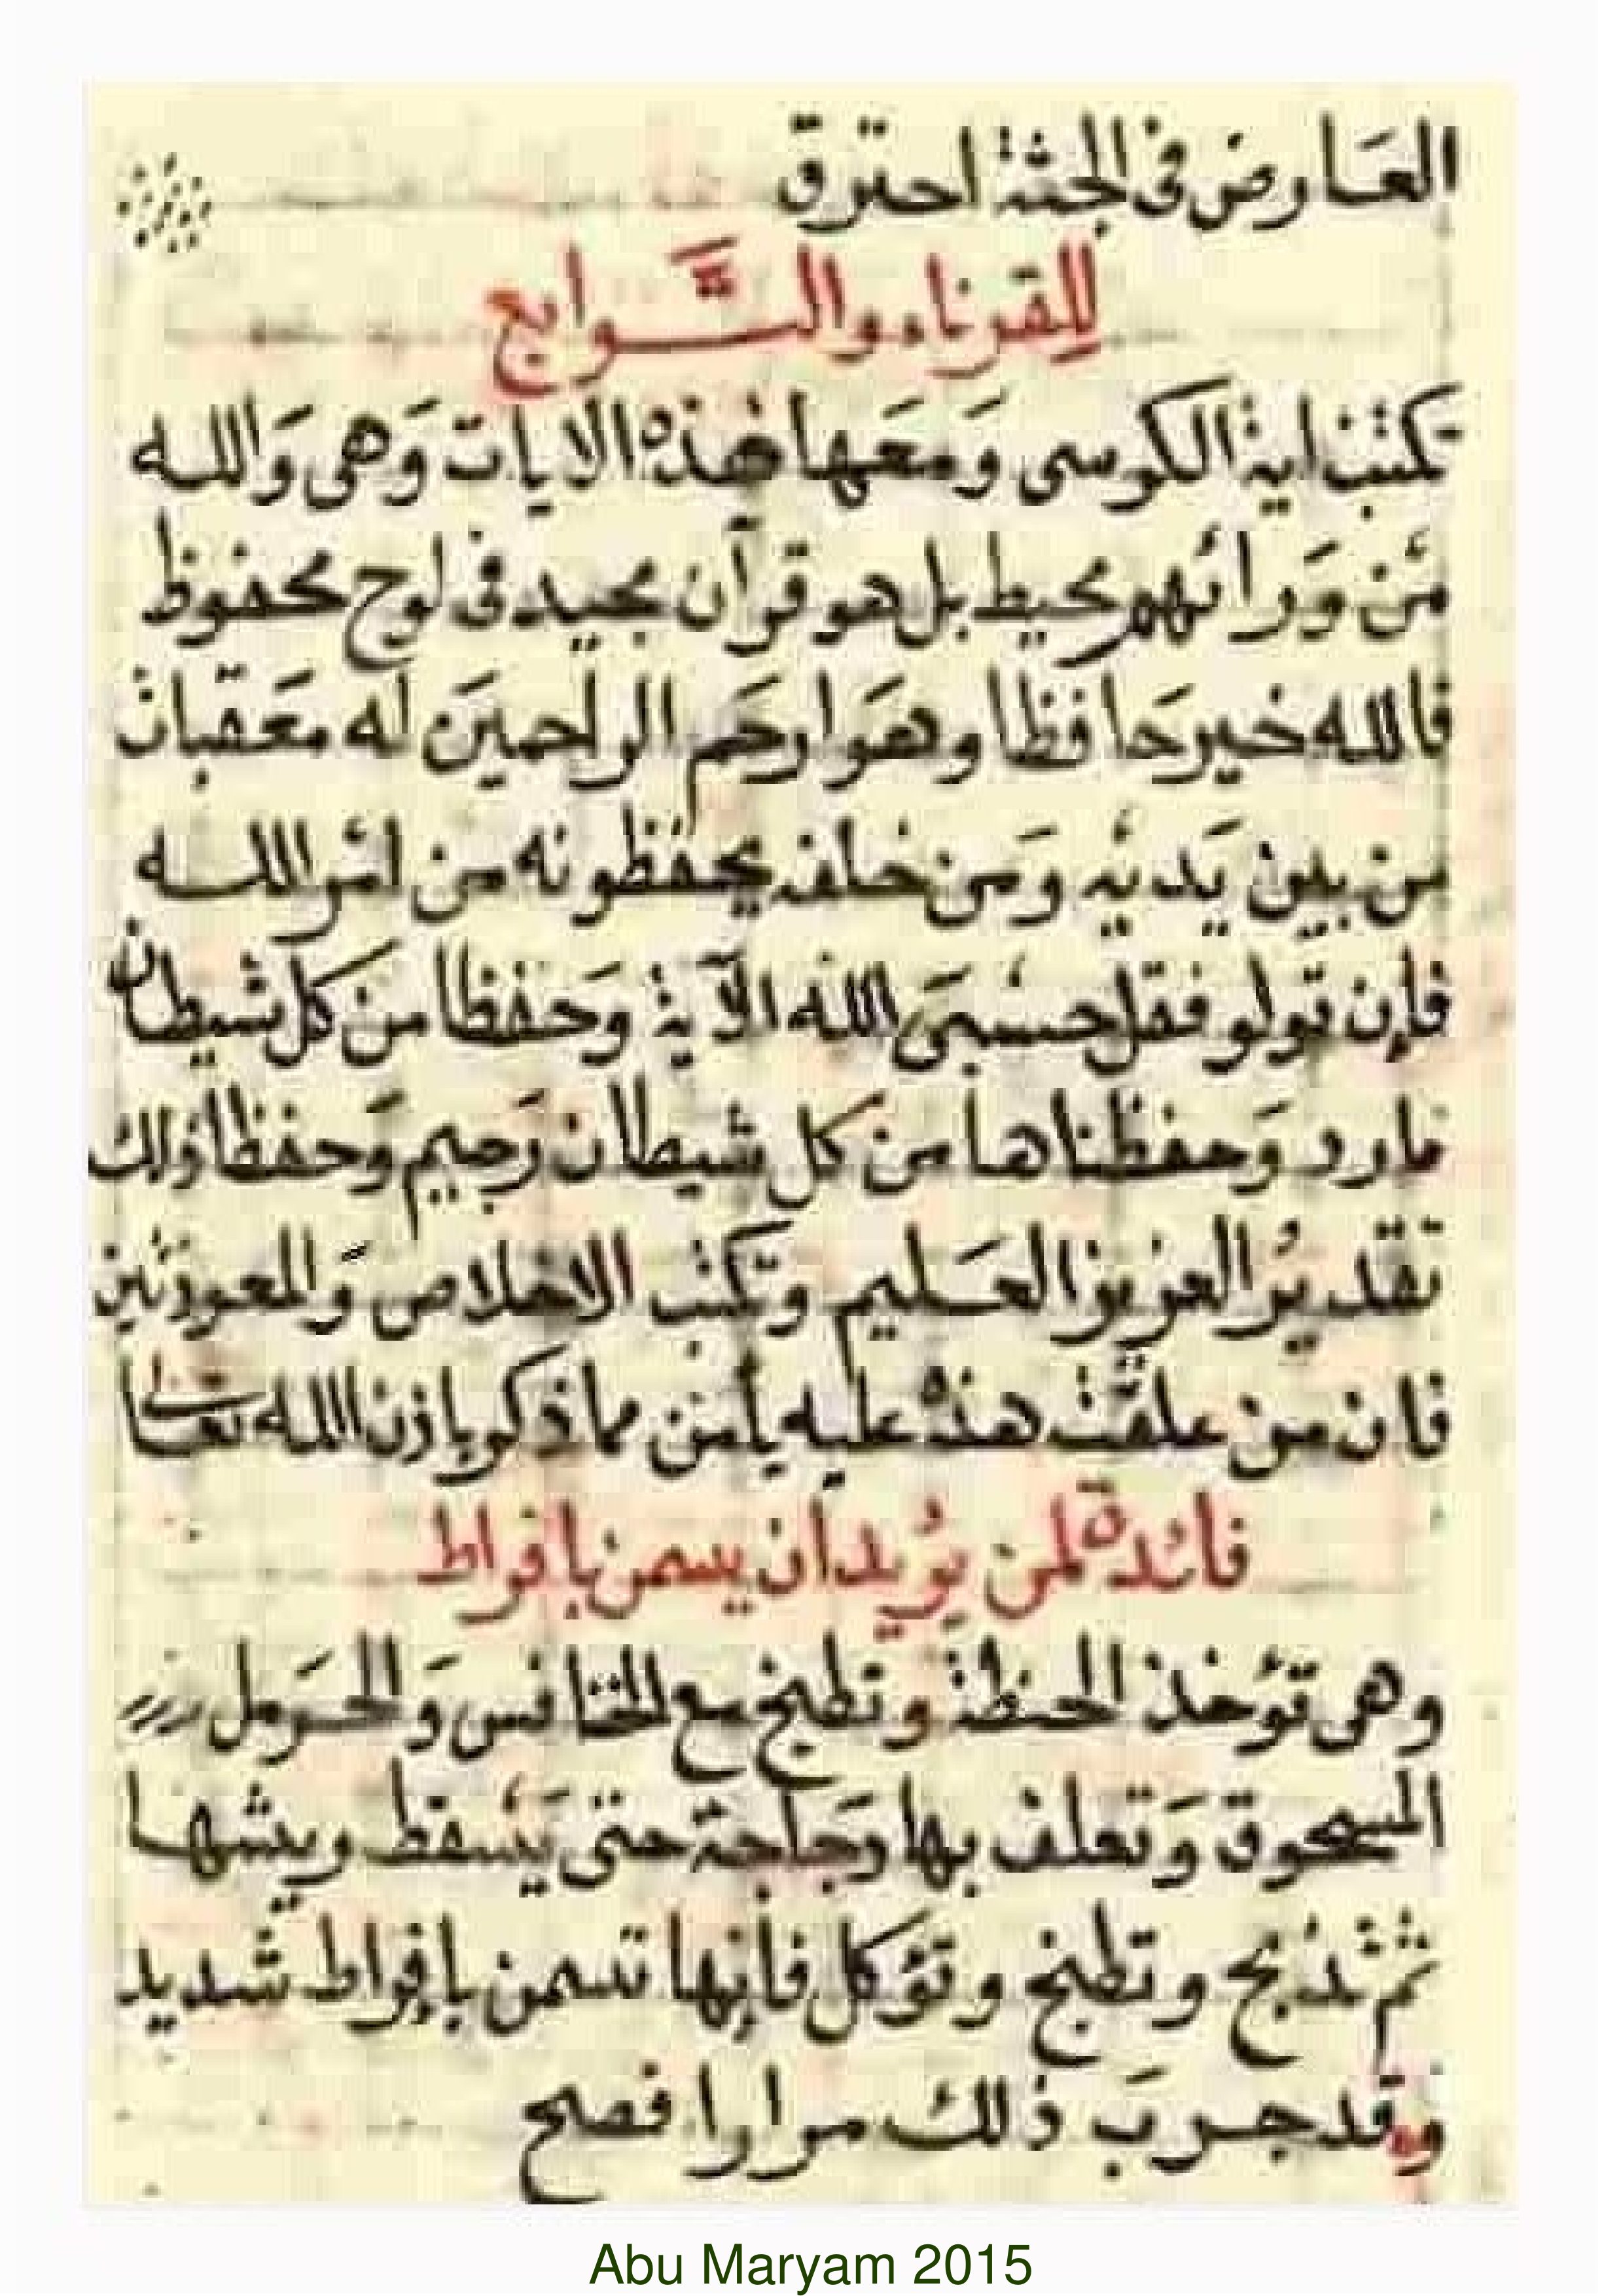 العَارض فى الجثة احترق
للقرناء والتَّوابع
تكتب اية الكرسى وَمعَها هذه الايات وَهى وَالله
من وَرائهم محيط بل هو قرآن مجيد فى لوح محفوظ
فالله خير حَافظا وهوَ ارحَم الراحمينَ له معَقبات
من بين يَديه وَمن خلفه يحفظونه من امر الله
فإن تولو فقل حسبىَ الله الآية وَحفظا من كل شيطان
مارد وَحفظناها من كل شيطان رَجيم وَحفظا ذلك
تقديرُ العزيز العَليم وَتكتب الاخلاص وَالمعوذتين
فان من علقت هذه عليه يأمن مما ذكر باذن الله تعالى
فائدة لمن يُريد أن يسمن بافراط
وهى تؤخذ الحنطة وتطبخ مع الخنافس وَالحَرمل
المسحوق وَتعلف بها دجاجة حتى يَسقط ريشها
ثم تذبح وتطبخ وتؤكل فإنها تسمن بإفراط شديد
وقد جربَ ذلك مرارا فصح
Abu Maryam 2015